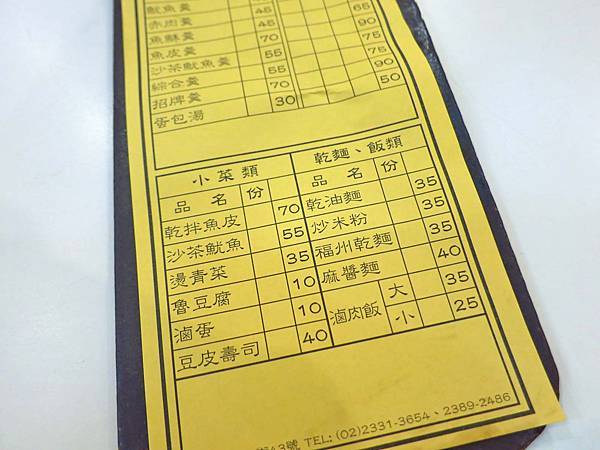 魷魚羹
赤肉羹 45
魚酥羹 45 65
魚皮羹 70 90
沙茶魷魚羹 55 75
綜合羹 55 75
招牌羹 70 90
蛋包湯 30 50
小菜類
品名 份
乾拌魚皮 70
沙茶魷魚 55
燙青菜 35
魯豆腐 10
滷蛋 10
豆皮壽司 40
乾麵、飯類
品名 份
乾油麵 35
炒米粉 35
福州乾麵 35
麻醬麵 40
滷肉飯 大 35
小 25
43號 TEL: (02)2331-3654、2389-2486